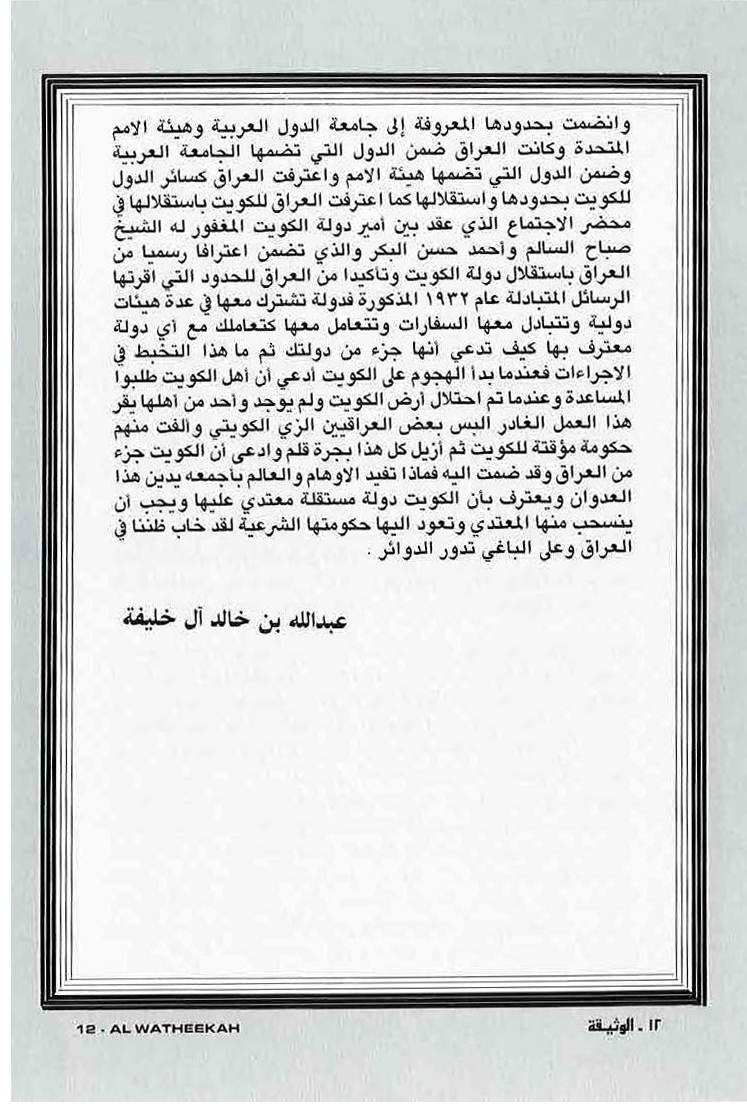 وانضمت بحدودها المعروفة إلى جامعة الدول العربية وهيئة الامم
المتحدة وكانت العراق ضمن الدول التي تضمها الجامعة العربية
وضمن الدول التي تضمها هيئة الامم واعترفت العراق كسائر الدول
للكويت بحدودها واستقلالها كما اعترفت العراق للكويت باستقلالها في
محضر الاجتماع الذي عقد بين أمير دولة الكويت المغفور له الشيخ
صباح السالم وأحمد حسن البكر والذي تضمن اعترافا رسميا من
العراق باستقلال دولة الكويت وتأكيدا من العراق للحدود التي اقرتها
الرسائل المتبادلة عام ١٩٣٢ المذكورة فدولة تشترك معها في عدة هيئات
دولية وتتبادل معها السفارات وتتعامل معها كتعاملك مع أي دولة
معترف بها كيف تدعي أنها جزء من دولتك ثم ما هذا التخبط في
الاجراءات فعندما بدأ الهجوم على الكويت أدعي أن أهل الكويت طلبوا
المساعدة وعندما تم احتلال أرض الكويت ولم يوجد وأحد من أهلها يقر
هذا العمل الغادر البس بعض العراقيين الزي الكويتي وألفت منهم
حكومة مؤقتة للكويت ثم أزيل كل هذا بجرة قلم وادعى أن الكويت جزء
من العراق وقد ضمت اليه فماذا تفيد الاوهام والعالم بأجمعه يدين هذا
العدوان ويعترف بأن الكويت دولة مستقلة معتدي عليها ويجب أن
ينسحب منها المعتدي وتعود اليها حكومتها الشرعية لقد خاب ظننا في
العراق وعلى الباغي تدور الدوائر .
عبدالله بن خالد آل خليفة
١٢ - الوثيقة
12 - AL WATHEEKAH